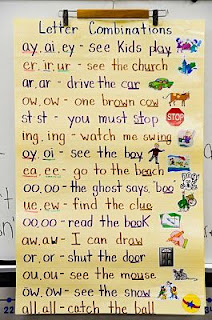 Letter Combinations
ay, ai, ey - see Kids play
er, ir, ur - see the church
ar, ar - drive the car
ow, ow - one brown cow
st st - you must stop
ing, ing - watch me swing
oy, oi - see the boy
ea, ee - go to the beach
oo, oo - the ghost says, "boo
ue, ew - find the clue
oo, oo - read the book
aw, aw - I can draw
or, or - shut the door
ou, ou - see the mouse
ow, ow - see the snow
all, all - catch the ball
22